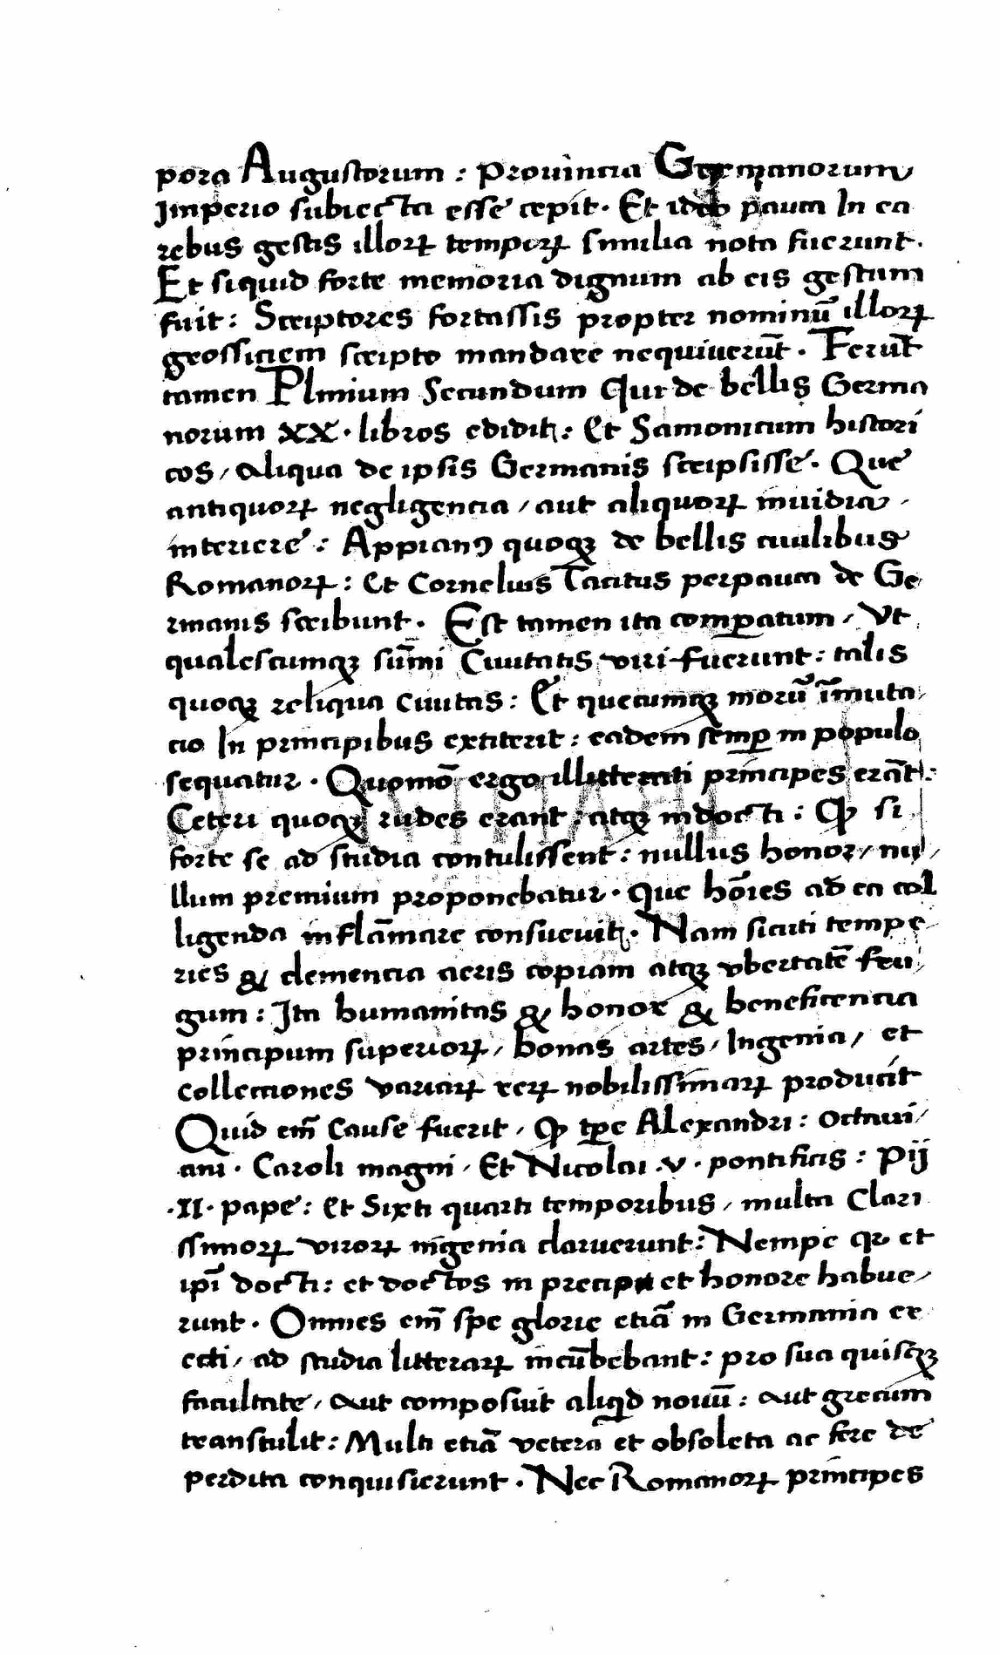 pora Augustorum : prouincia Germanorum
Imperio subiecta esse cepit . Et ideo pauca In ea
rebus gestis illorꝝ temporꝝ similia nota fuerunt .
Et siquid forte memoria dignum ab eis gestum
fuit : Scriptores fortassis propter nominū illorꝝ
grossiciem scripto mandare nequiuerūt . Ferūt
tamen Plinium Secundum Qui de bellis Germa
norum XX . libros edidit : Et Samonicum histori
cos / Aliqua de ipsis Germanis scripsisse . Que
antiquorꝝ negligencia / aut aliquorꝝ inuidia /
interiere : Appianꝰ quoqꝫ de bellis ciuilibus
Romanorꝝ : Et Cornelius Tacitus perpauca de Ge
rmanis scribunt . Est tamen ita comꝑatum / Vt
qualescumqꝫ sum̄i Ciuitatis viri fuerunt : talis
quoqꝫ reliqua ciuitas : Et quecumqꝫ morū īmuta
cio In principibus extiterit : eadem semꝑ in populo
sequatur . Quomō ergo illitterati principes erāt :
Ceteri quoqꝫ rudes erant : atqꝫ indocti : Ꝙ si
forte se ad studia contulissent : nullus honor / nu /
llum premium proponebatur . Que hōies ad ea col
ligenda inflāmare consueuit . Nam sicuti tempe
ries & clemencia aeris copiam atqꝫ vbertatē fru
gum : Ita humanitas & honor & beneficencia
principum superiorꝝ / bonas artes / Ingenia / et
collectiones variarꝝ rerꝝ nobilissimarꝝ producit
Quid em̄ Cause fuerit / ꝙ tꝑe Alexandri : octaui /
ani . Caroli magni / Et Nicolai . v . pontificis : Pij
. II . pape : Et Sixti quarti temporibus / multa Clari
ssimorꝝ virorꝝ ingenia claruerunt : Nempe qꝛ et
ipī docti : et doctos in precio et honore habue /
runt . Omnes em̄ spe glorie etiā in Germania er
ecti / ad studia litterarꝝ incūbebant : pro sua quisqꝫ
facultate / Aut composuit aliqd nouū : Aut grecum
transtulit : Multi etiā vetera et obsoleta ac fere de
perdita conquisierunt . Nec Romanorꝝ principes